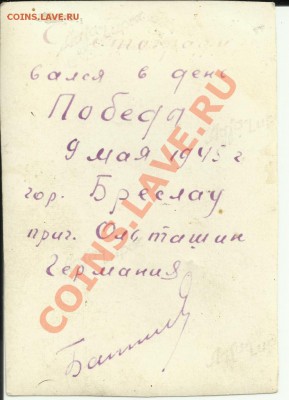 COINS.LAVE.RU
вался в день
Победд
9 мая 1945 г
гор. Бреслау
приг. Ольташин
Германия
COINS.LAVE.RU
COINS.LAVE.RU